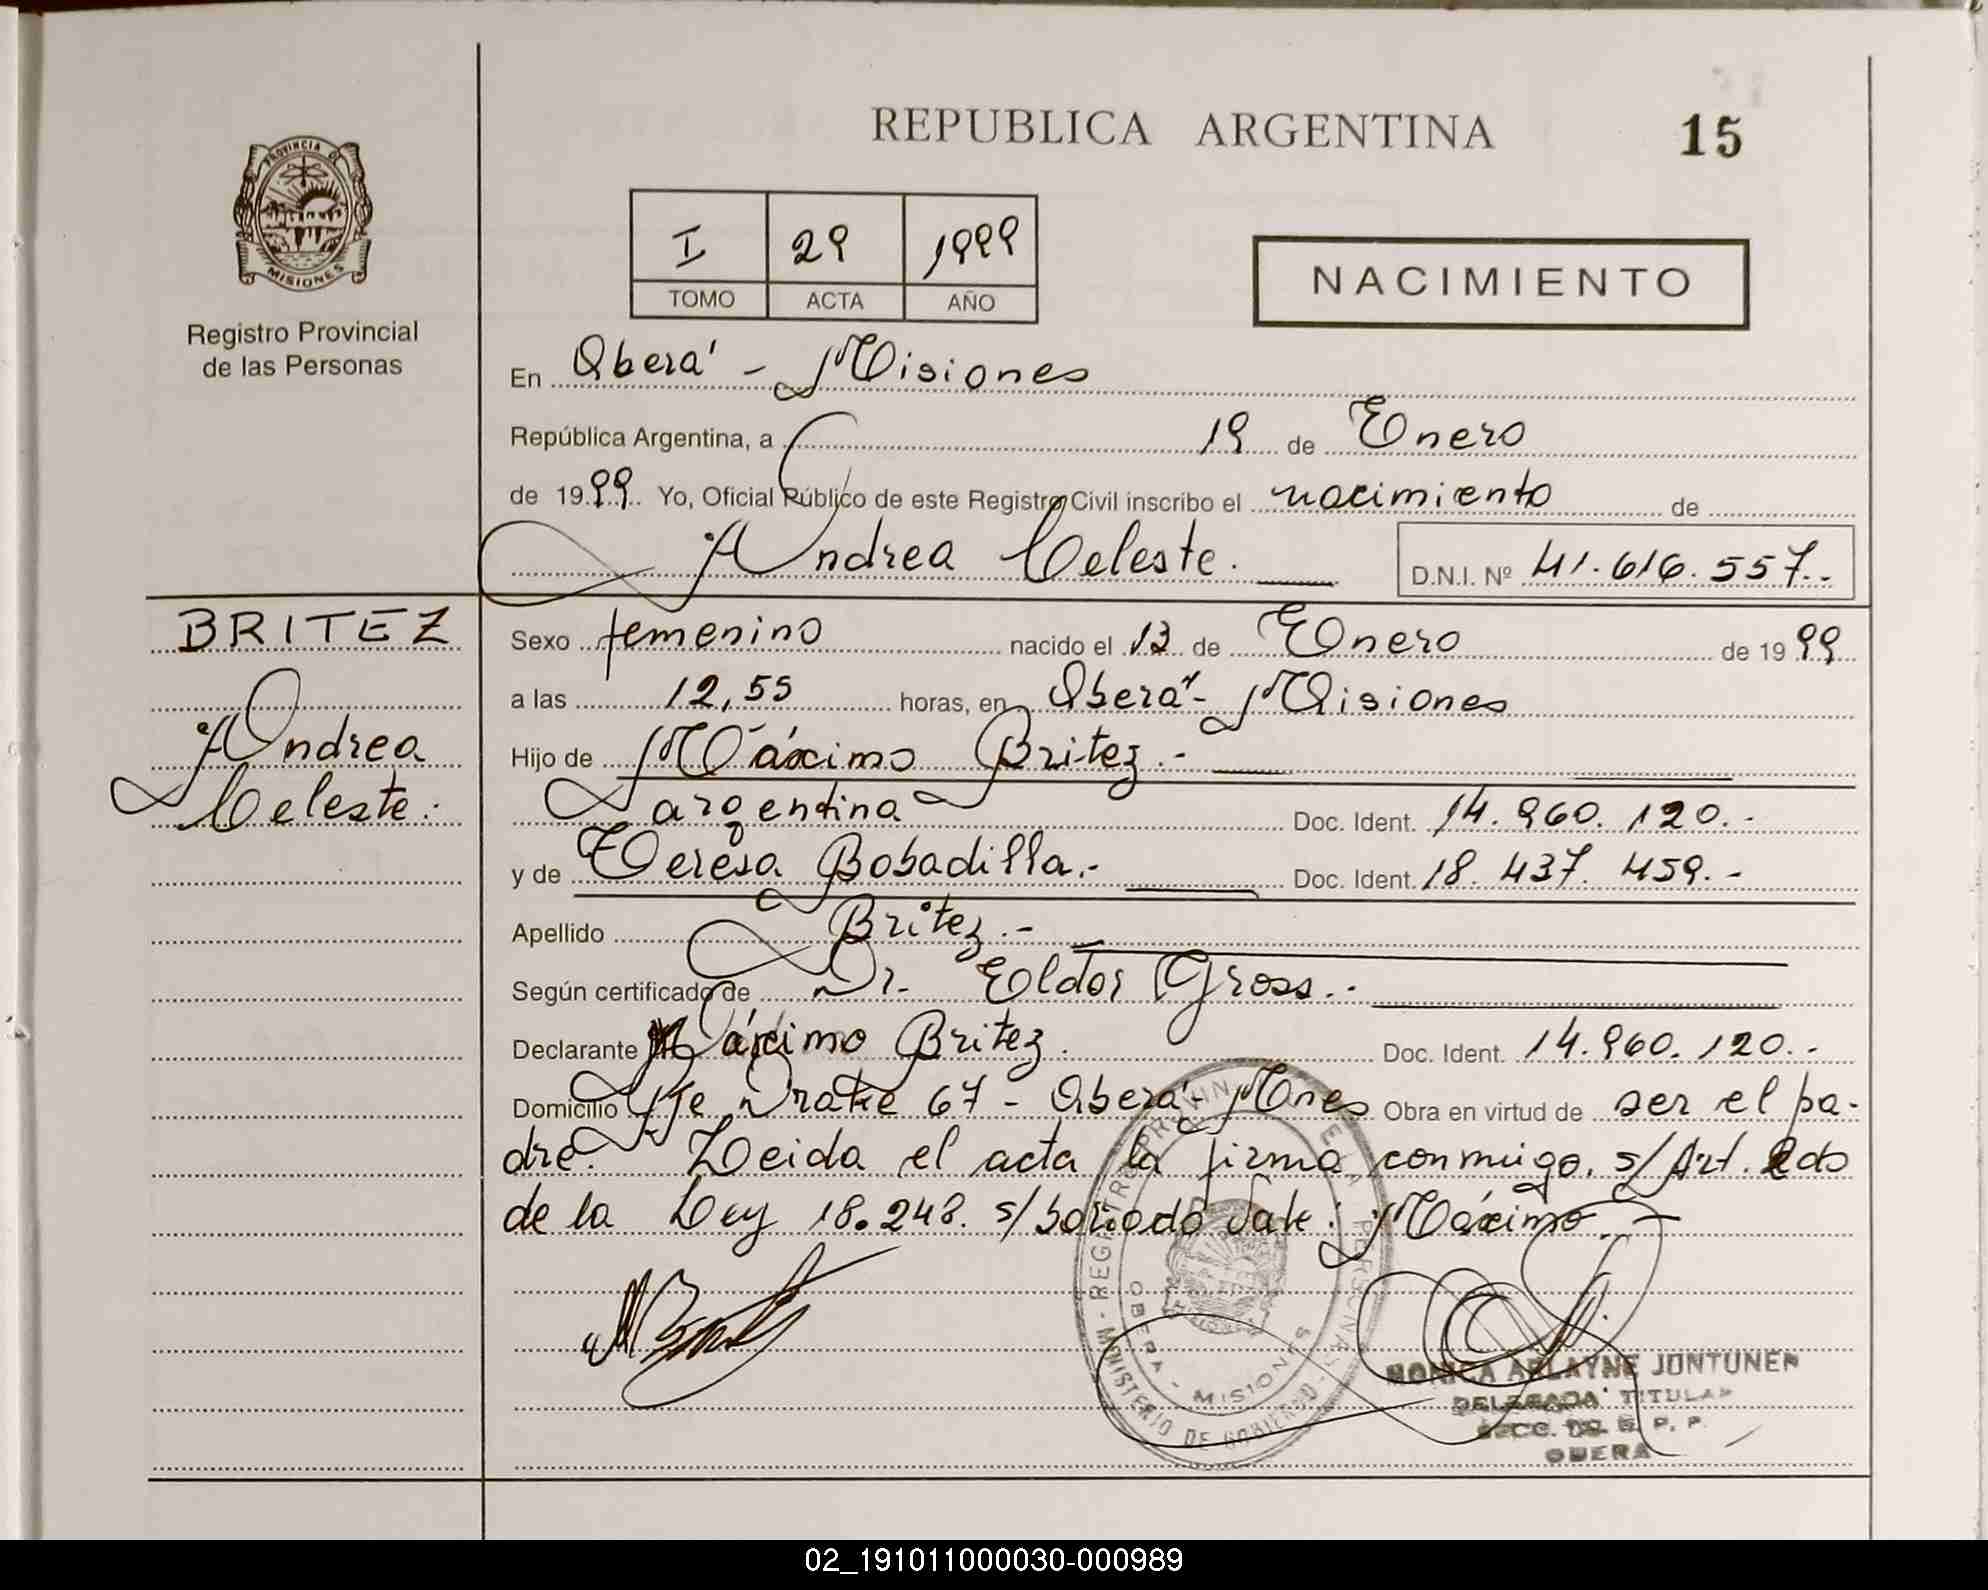 REPUBLICA ARGENTINA
15
PROVINCIA DE
MISIONES
Registro Provincial
de las Personas
I 29 1999
TOMO ACTA AÑO
NACIMIENTO
En Oberá - Misiones
República Argentina, a 19 de Enero
de 1999 Yo, Oficial Público de este Registro Civil inscribo el nacimiento de
Andrea Celeste.
D.N.I. Nº 41.616.557.-
BRITEZ
Andrea
Celeste:
Sexo femenino nacido el 13 de Enero de 1999
a las 12,55 horas, en Oberá - Misiones
Hijo de Máximo Britez.-
argentina Doc. Ident. 14.960.120.-
y de Teresa Bobadilla.- Doc. Ident. 18.437.459.-
Apellido Britez.-
Según certificado de Dr. Eldor Gross.-
Declarante Máximo Britez. Doc. Ident. 14.960.120.-
Domicilio Pje Drake 67 - Oberá - Mnes Obra en virtud de ser el pa-
dre. Leida el acta la firma conmigo. s/Art. 2do
de la Ley 18.248. s/borrado Vale: Máximo.-
REGISTRO PROVINCIAL DE LAS PERSONAS
MINISTERIO DE GOBIERNO
OBERA - MISIONES
MONICA ARLAYNE JUNTUNEN
DELEGADA TITULAR
SECC. R. P. P.
OBERA
02_191011000030-000989